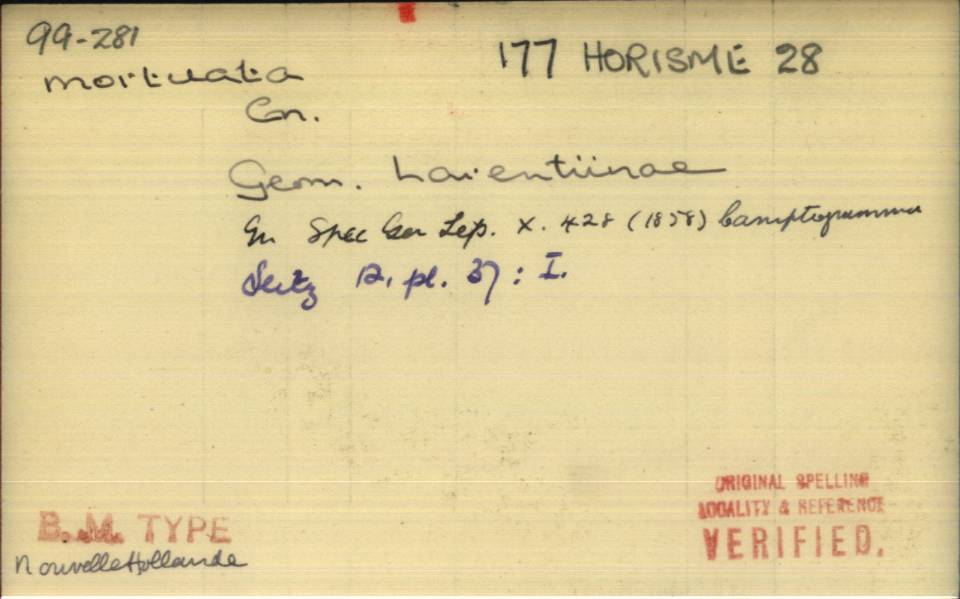 99-281
177 HORISME 28
mortuata
Gn.
Geom. Larentiinae
Gn Spec Gen Lep. X. 428 (1858) Camptogramma
Seitz 12, pl. 37 : I.
B.M. TYPE
Nouvelle Hollande
ORIGINAL SPELLING
LOCALITY & REFERENCE
VERIFIED.